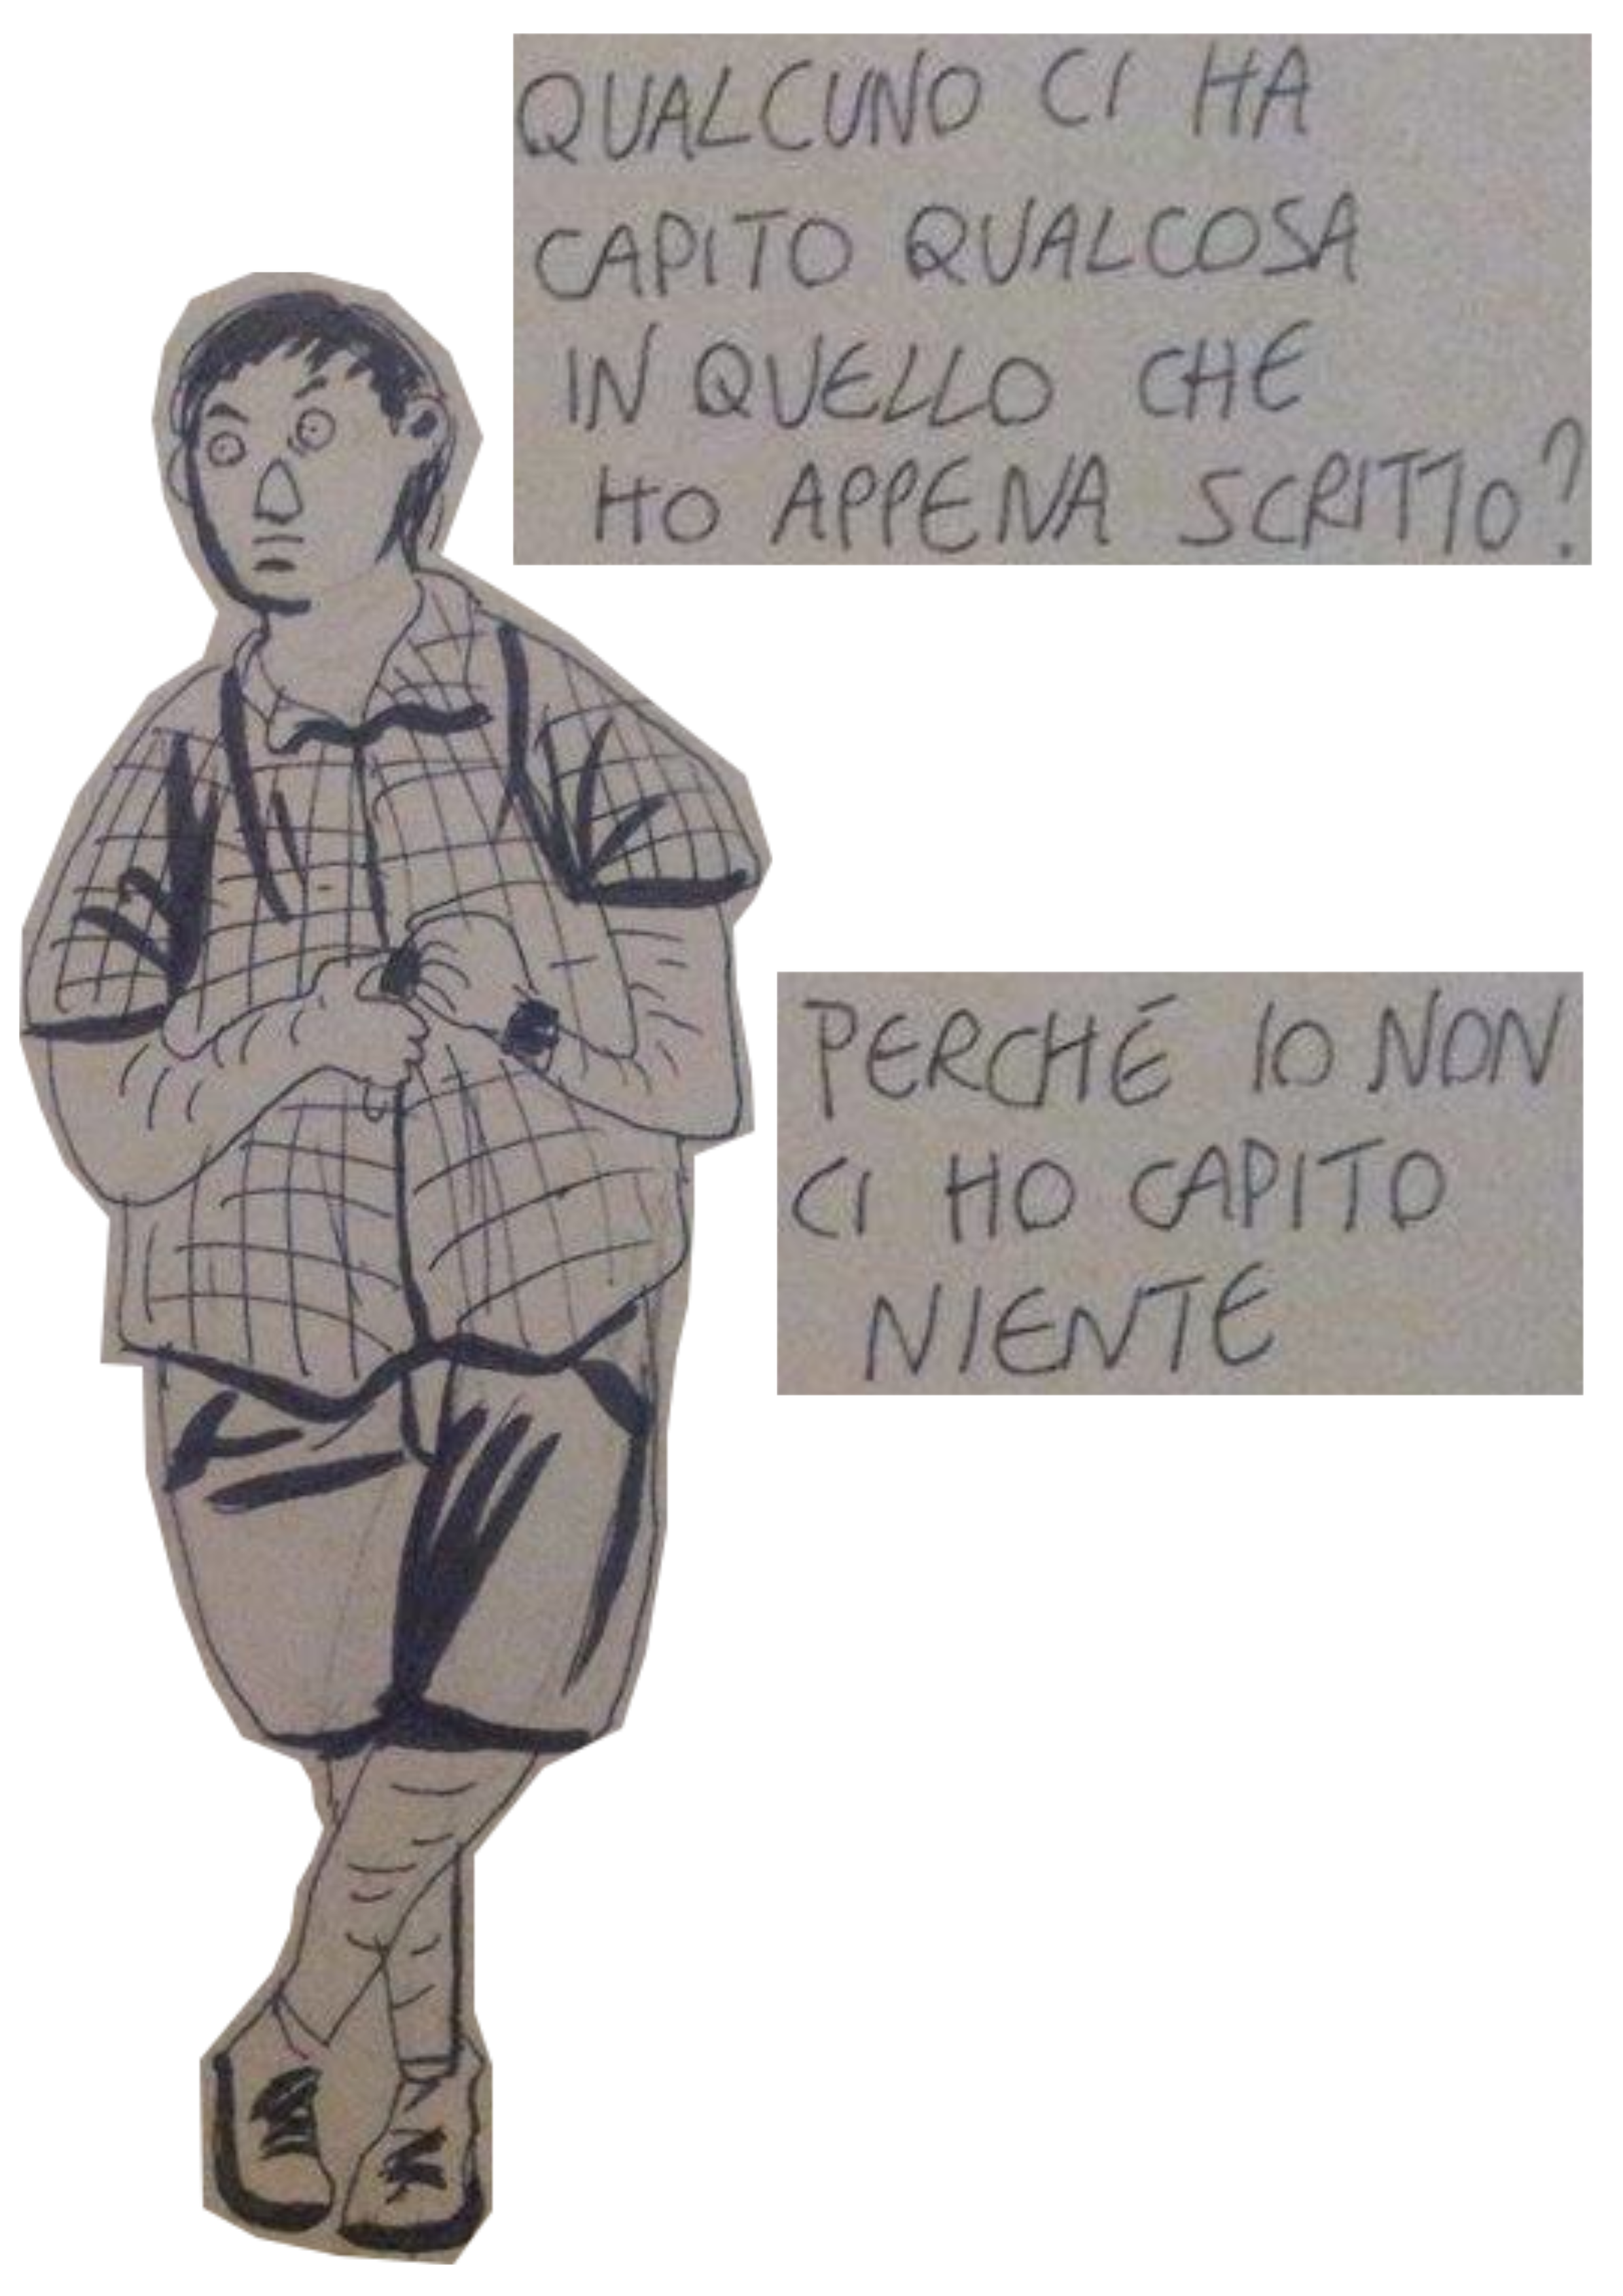 QUALCUNO CI HA
CAPITO QUALCOSA
IN QUELLO CHE
HO APPENA SCRITTO?
PERCHÉ IO NON
CI HO CAPITO
NIENTE